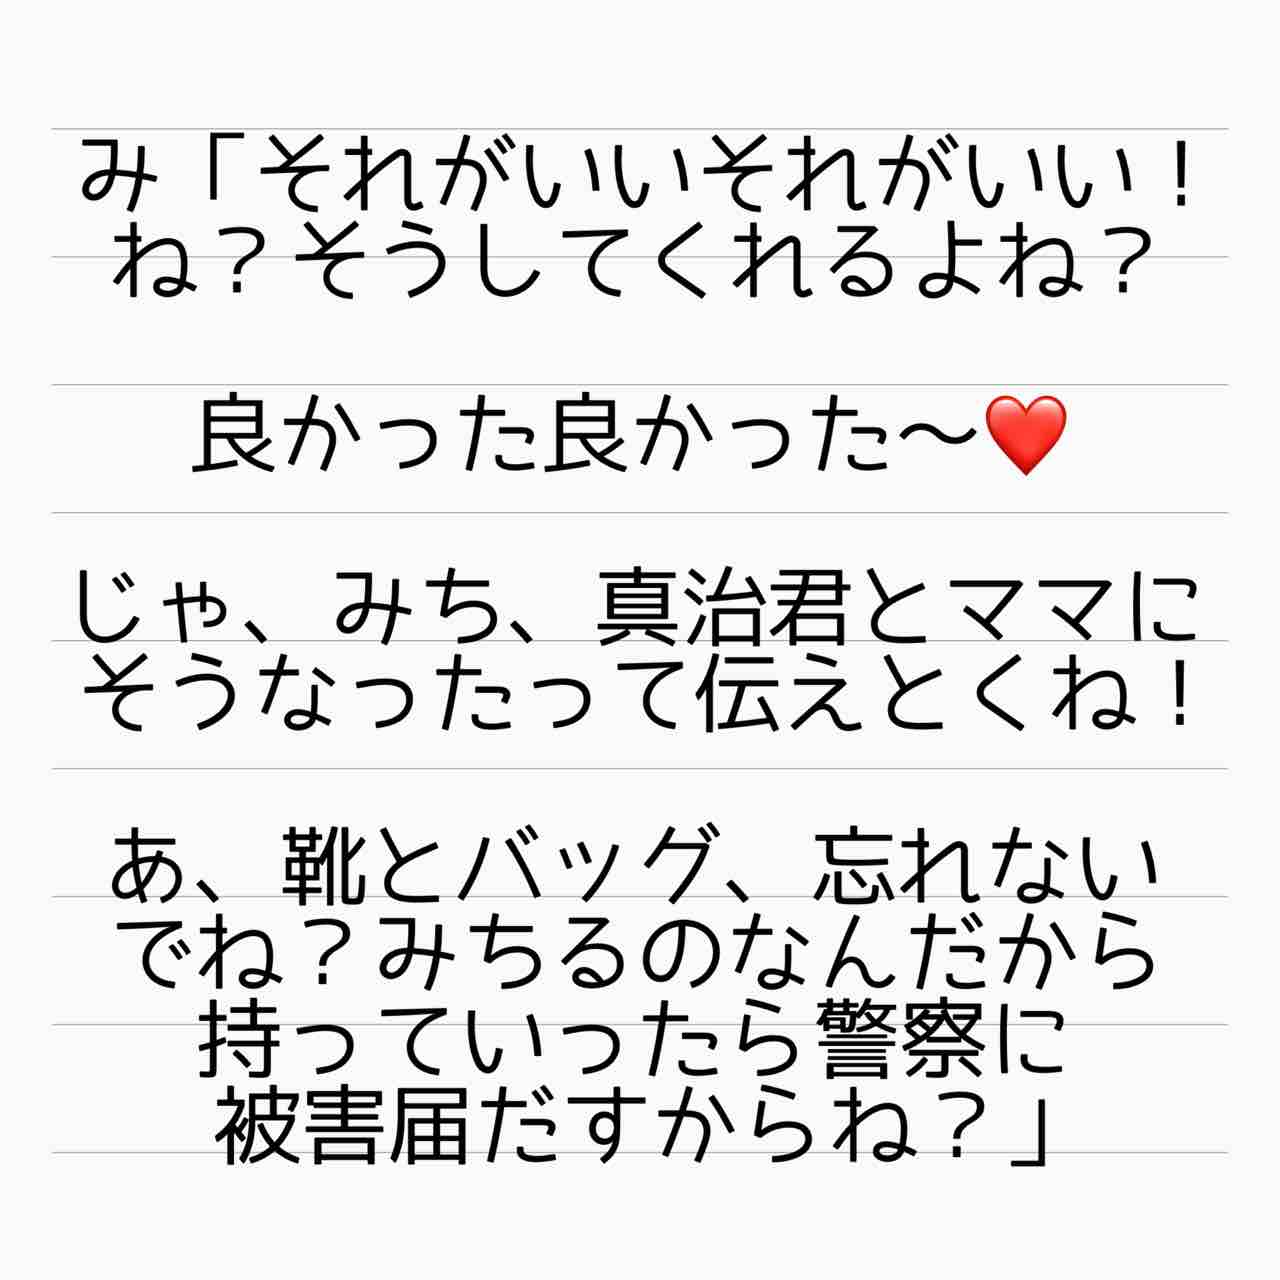 み「それがいいそれがいい！
ね？そうしてくれるよね？
良かった良かった〜❤️
じゃ、みち、真治君とママに
そうなったって伝えとくね！
あ、靴とバッグ、忘れない
でね？みちるのなんだから
持っていったら警察に
被害届だすからね？」